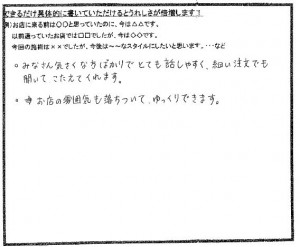 できるだけ具体的に書いていただけるとうれしさが倍増します！
例）お店に来る前は〇〇と思っていたのに、今は△△です。
以前通っていたお店では□□でしたが、今は◇◇です。
今回の施術は××でしたが、今後は～～なスタイルにしたいと思います。・・・など
。みなさん気さくな方ばかりでとても話しやすく、細い注文でも
聞いてこたえてくれます。
。お店の雰囲気も落ちついて、ゆっくりできます。